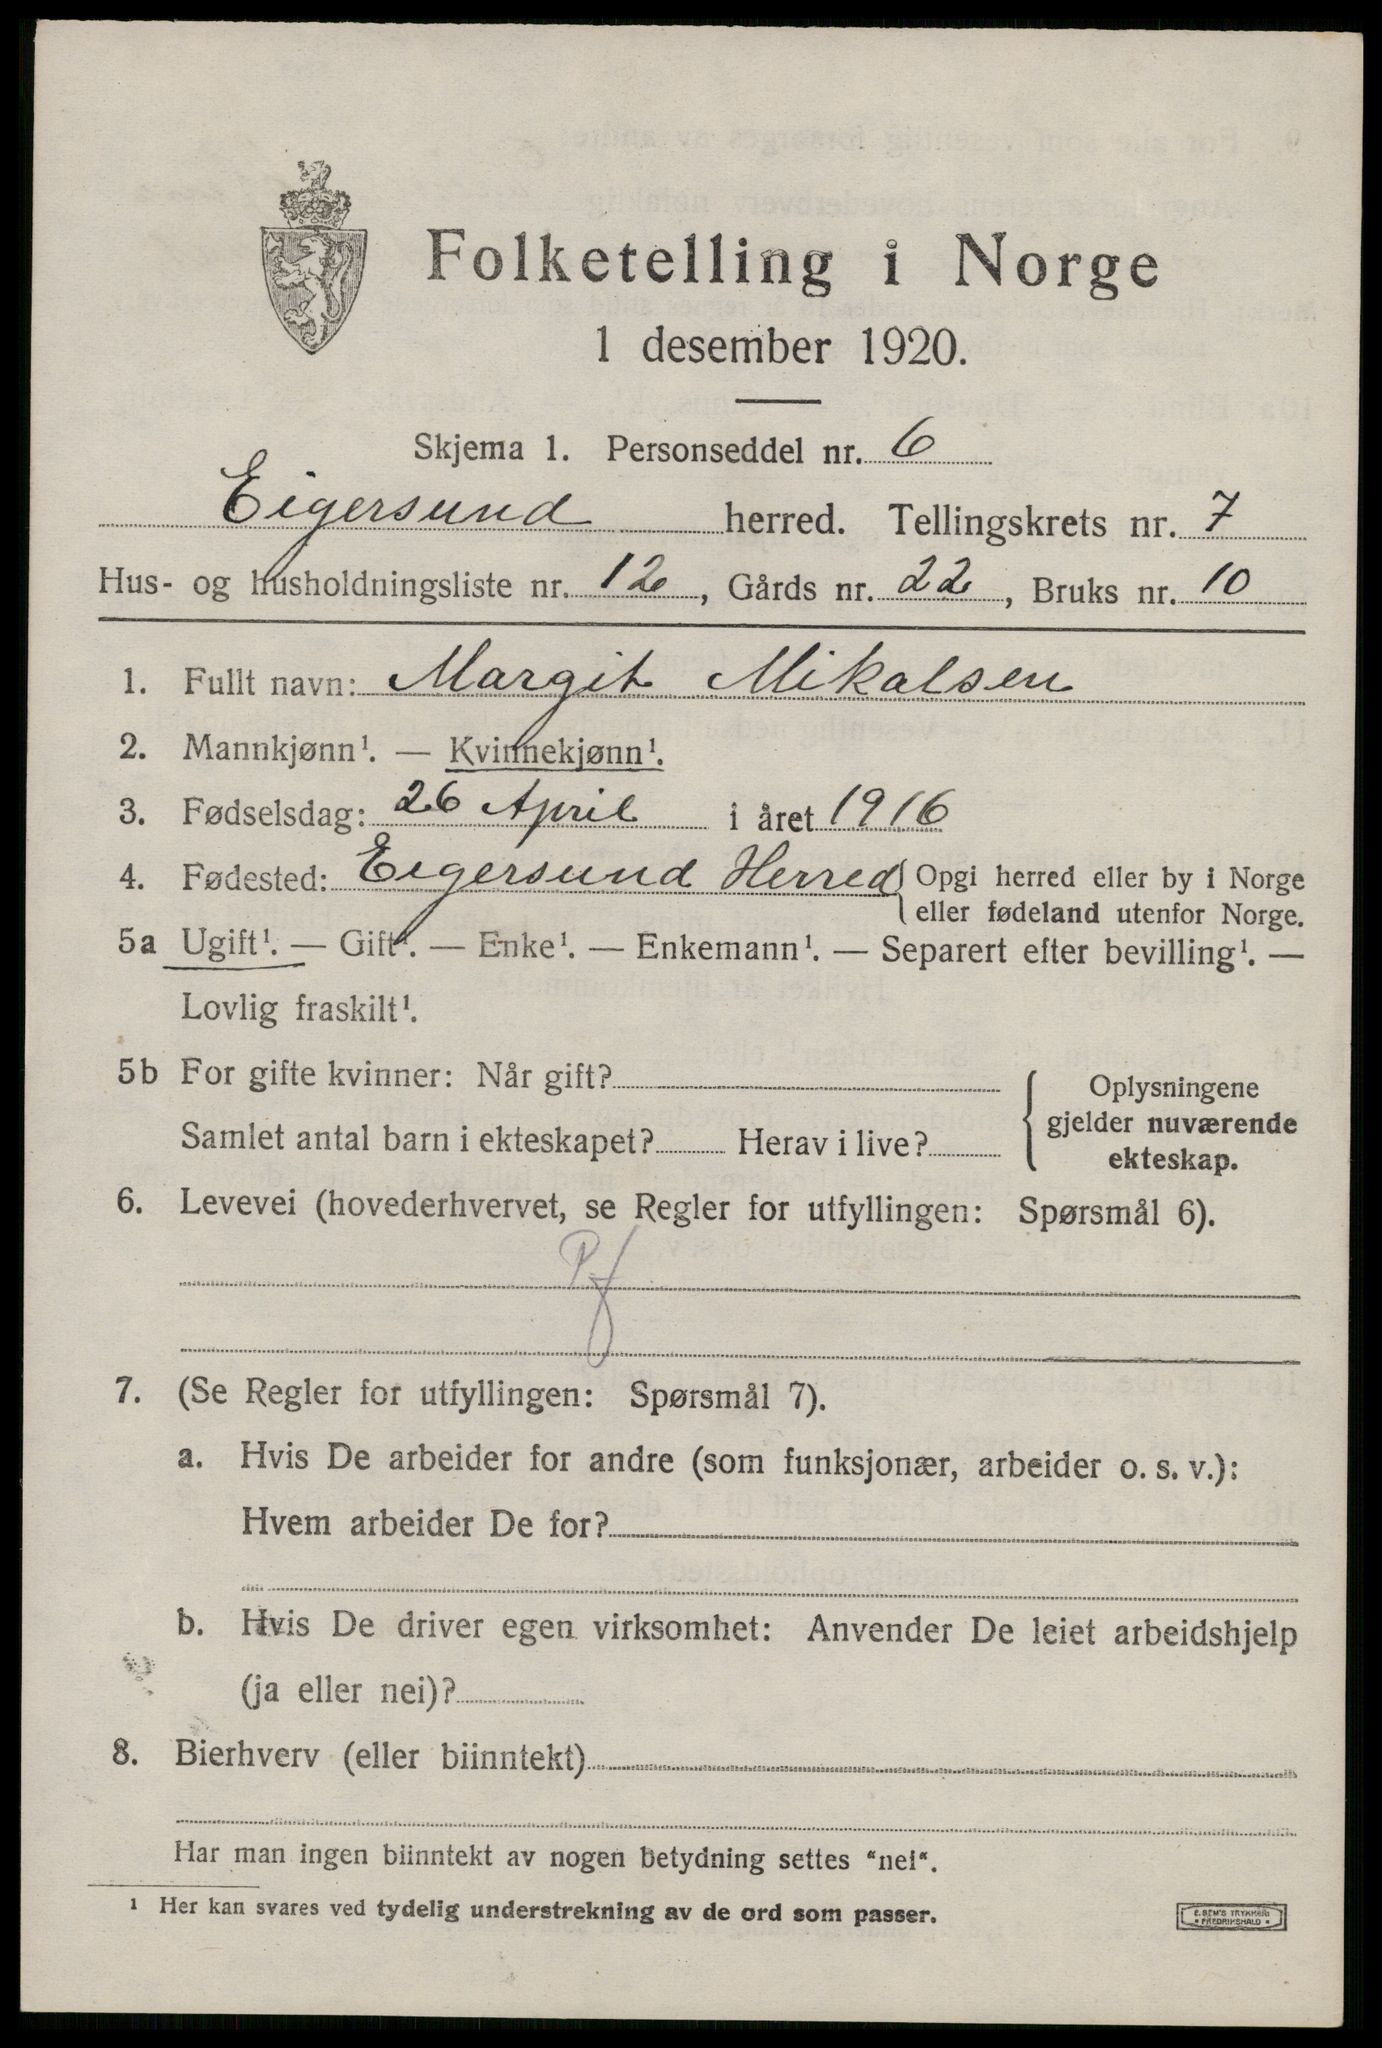 Folketelling i Norge
1 desember 1920.
Skjema 1. Personseddel nr. 6
Eigersund herred. Tellingskrets nr. 7
Hus- og husholdningsliste nr. 12, Gårds nr. 22, Bruks nr. 10
1. Fullt navn: Margit Mikalsen
2. Mannkjønn¹. — Kvinnekjønn¹.
3. Fødselsdag: 26 April i året 1916
4. Fødested: Eigersund Herred { Opgi herred eller by i Norge
eller fødeland utenfor Norge.
5a Ugift¹. — Gift¹. — Enke¹. — Enkemann¹. — Separert efter bevilling¹. —
Lovlig fraskilt¹.
5b For gifte kvinner: Når gift?
Samlet antal barn i ekteskapet? Herav i live?
Oplysningene
gjelder nuværende
ekteskap.
6. Levevei (hovederhvervet, se Regler for utfyllingen: Spørsmål 6).
Pf
7. (Se Regler for utfyllingen: Spørsmål 7).
a. Hvis De arbeider for andre (som funksjonær, arbeider o. s. v.):
Hvem arbeider De for?
b. Hvis De driver egen virksomhet: Anvender De leiet arbeidshjelp
(ja eller nei)?
8. Bierhverv (eller biinntekt)
Har man ingen biinntekt av nogen betydning settes "nei".
¹ Her kan svares ved tydelig understrekning av de ord som passer.
E. SEM'S TRYKKERI
FREDRIKSHALD